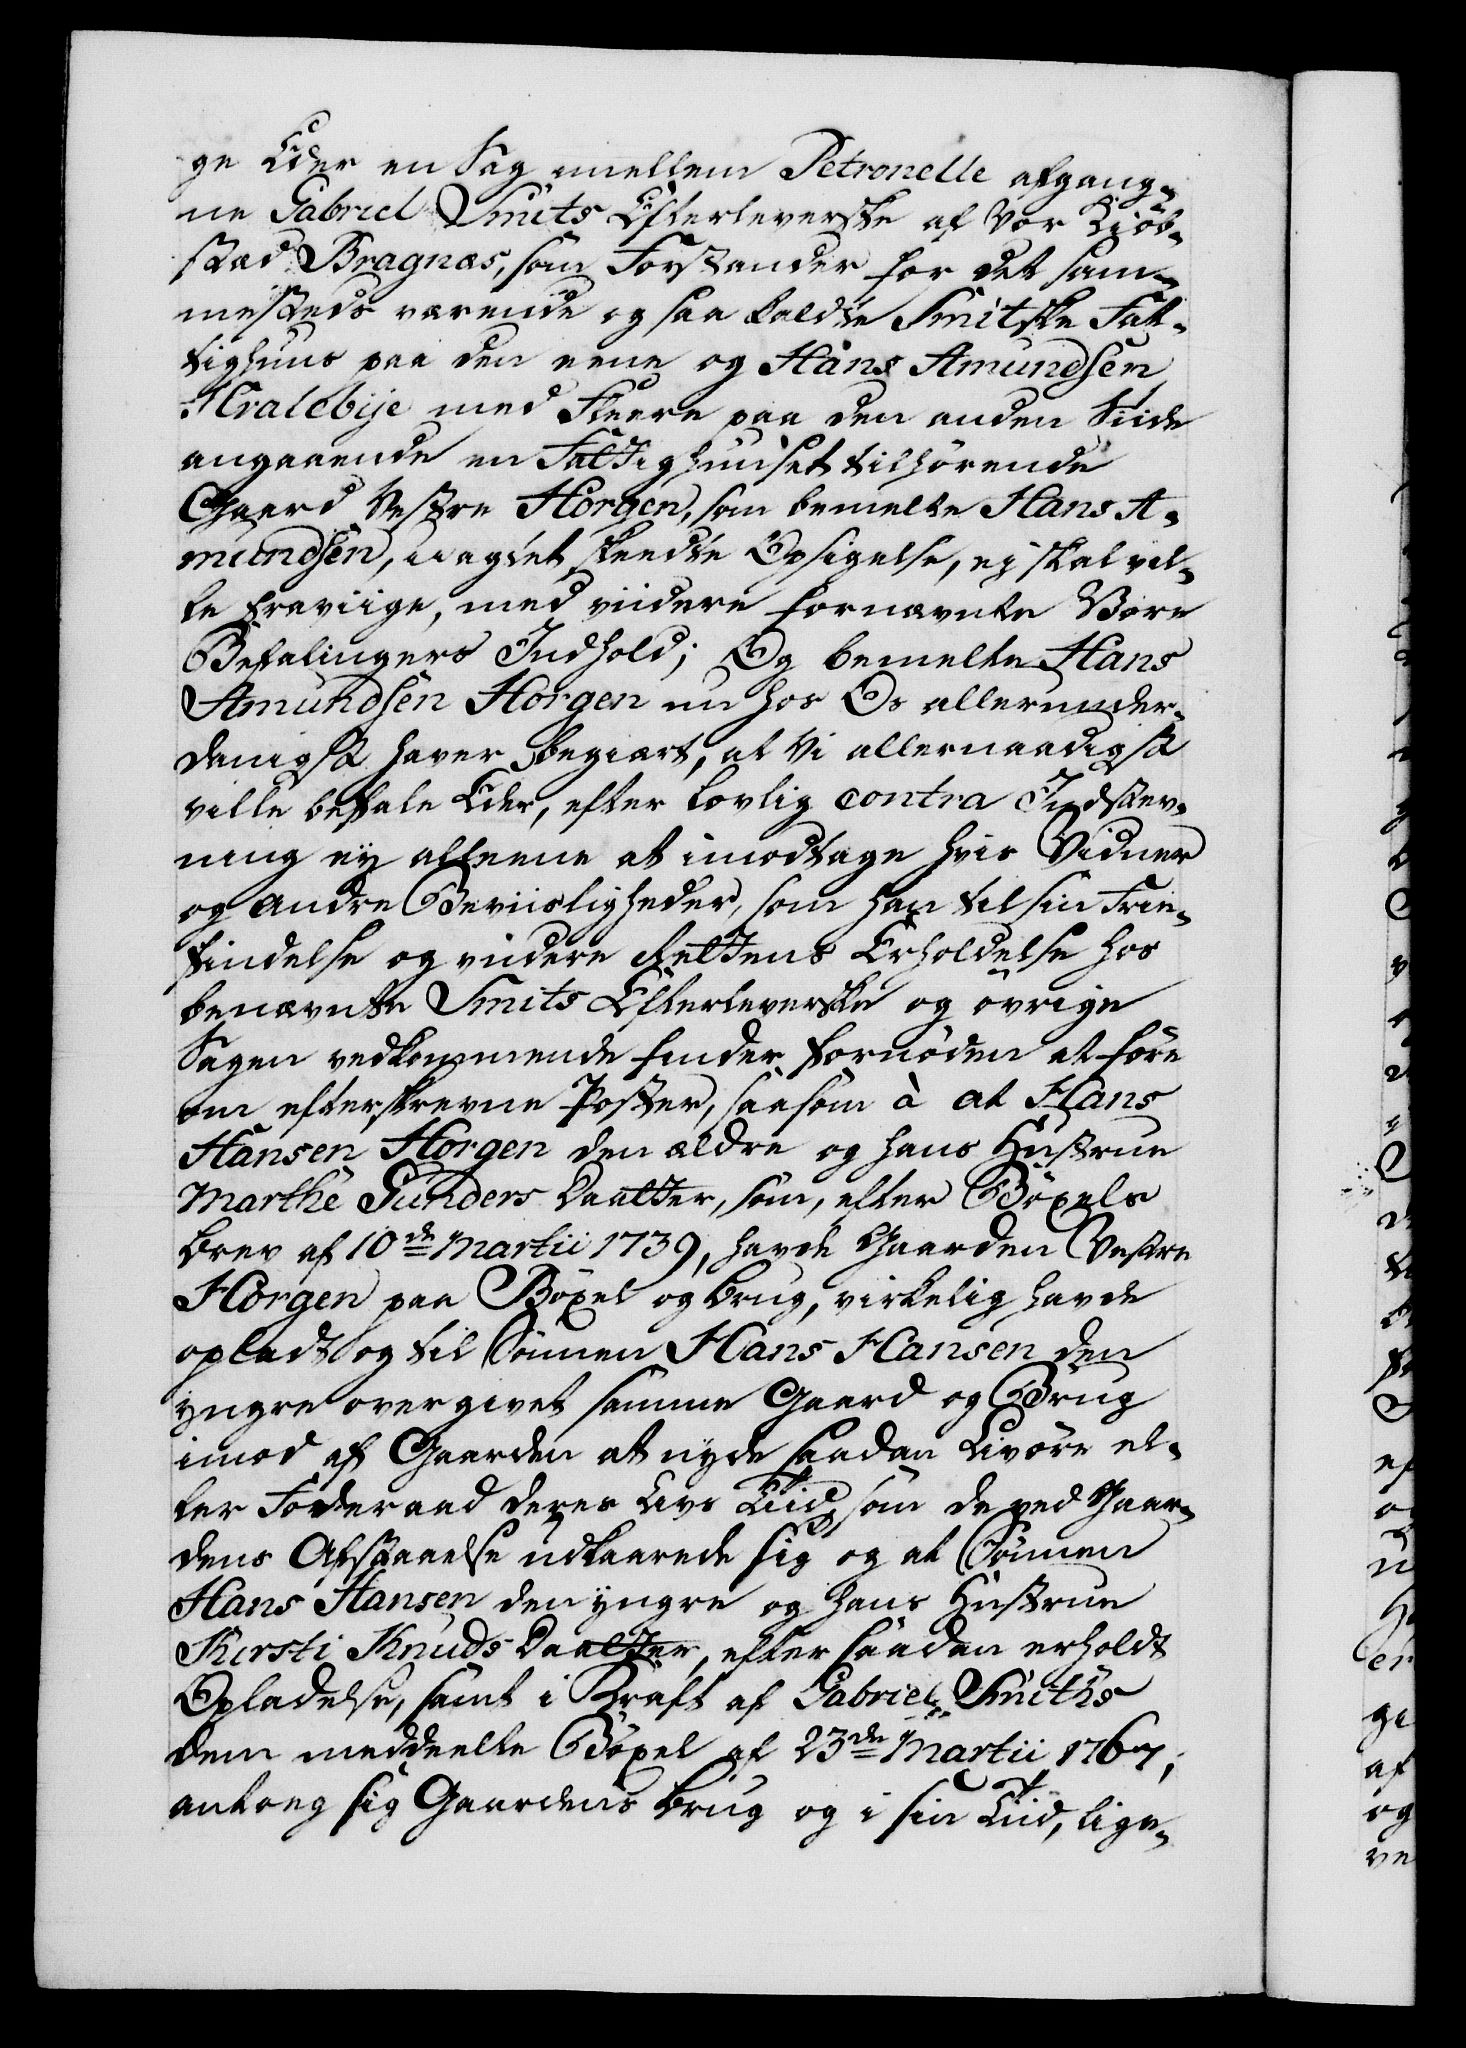 ge Eder en Sag imellem Petronelle afgang-
ne Gabriel Smits Efterleverske af Vor Kiöb-
stæd Bragnæs, som Forstander for det sam-
mesteds værende og saa kaldte Smitske Fat-
tighuus paa den eene og Hans Amundsen
Hralebije med Fleere paa den anden Siide
angaaende en Fattighuuset tilhörende
Gaard Vestre Horgen, som bemelte Hans A-
mundsen, uagtet skeedte Opsigelse, ej skal vil-
le fraviige, med viidere fornævnte Vore
Befalingers Indhold; Og bemelte Hans
Amundsen Horgen nu hos Os allerunder-
danigst haver begiært, at Vi allernaadigst
ville befale Eder, efter lovlig contra Indstev-
ning ey alleene at imodtage hvis Vidner
og andre Beviisligheder, som han til sin Frie-
findelse og viidere Rettens Erholdelse hos
benævnte Smits Efterleverske og övrige
Sagen vedkommende finder fornöden at före
om efterskrevne Poster, saasom à at Hans
Hansen Horgen den ældre og hans Hustrue
Marthe Gunders Daatter, som, efter Böxels
brev af 10de Martii 1739, havde Gaarden Vestre
Horgen paa Böxel og brug, virkelig havde
opladt og til Sönnen Hans Hansen den
yngre overgivet samme Gaard og Brug
imod af Gaarden at nyde saadan Livöre el-
ler Föderaad deres Livs Tiid, som de ved Gaar-
dens Afstaaelse udkaarede sig og at Sönnen
Hans Hansen den yngre og hans Hustrue
Kirsti Knuds Daatter, efter saadan erholdt
Opladelse, samt i Kraft af Gabriel Smiths
dem meddeelte Böxel af 23de Martii 1767,
antoeg sig Gaardens brug og i sin Tiid, lige-